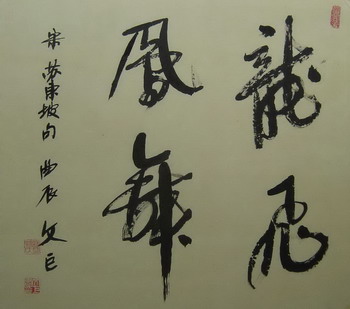 龍飛
鳳舞
宋 蘇東坡句 曲辰 文巨